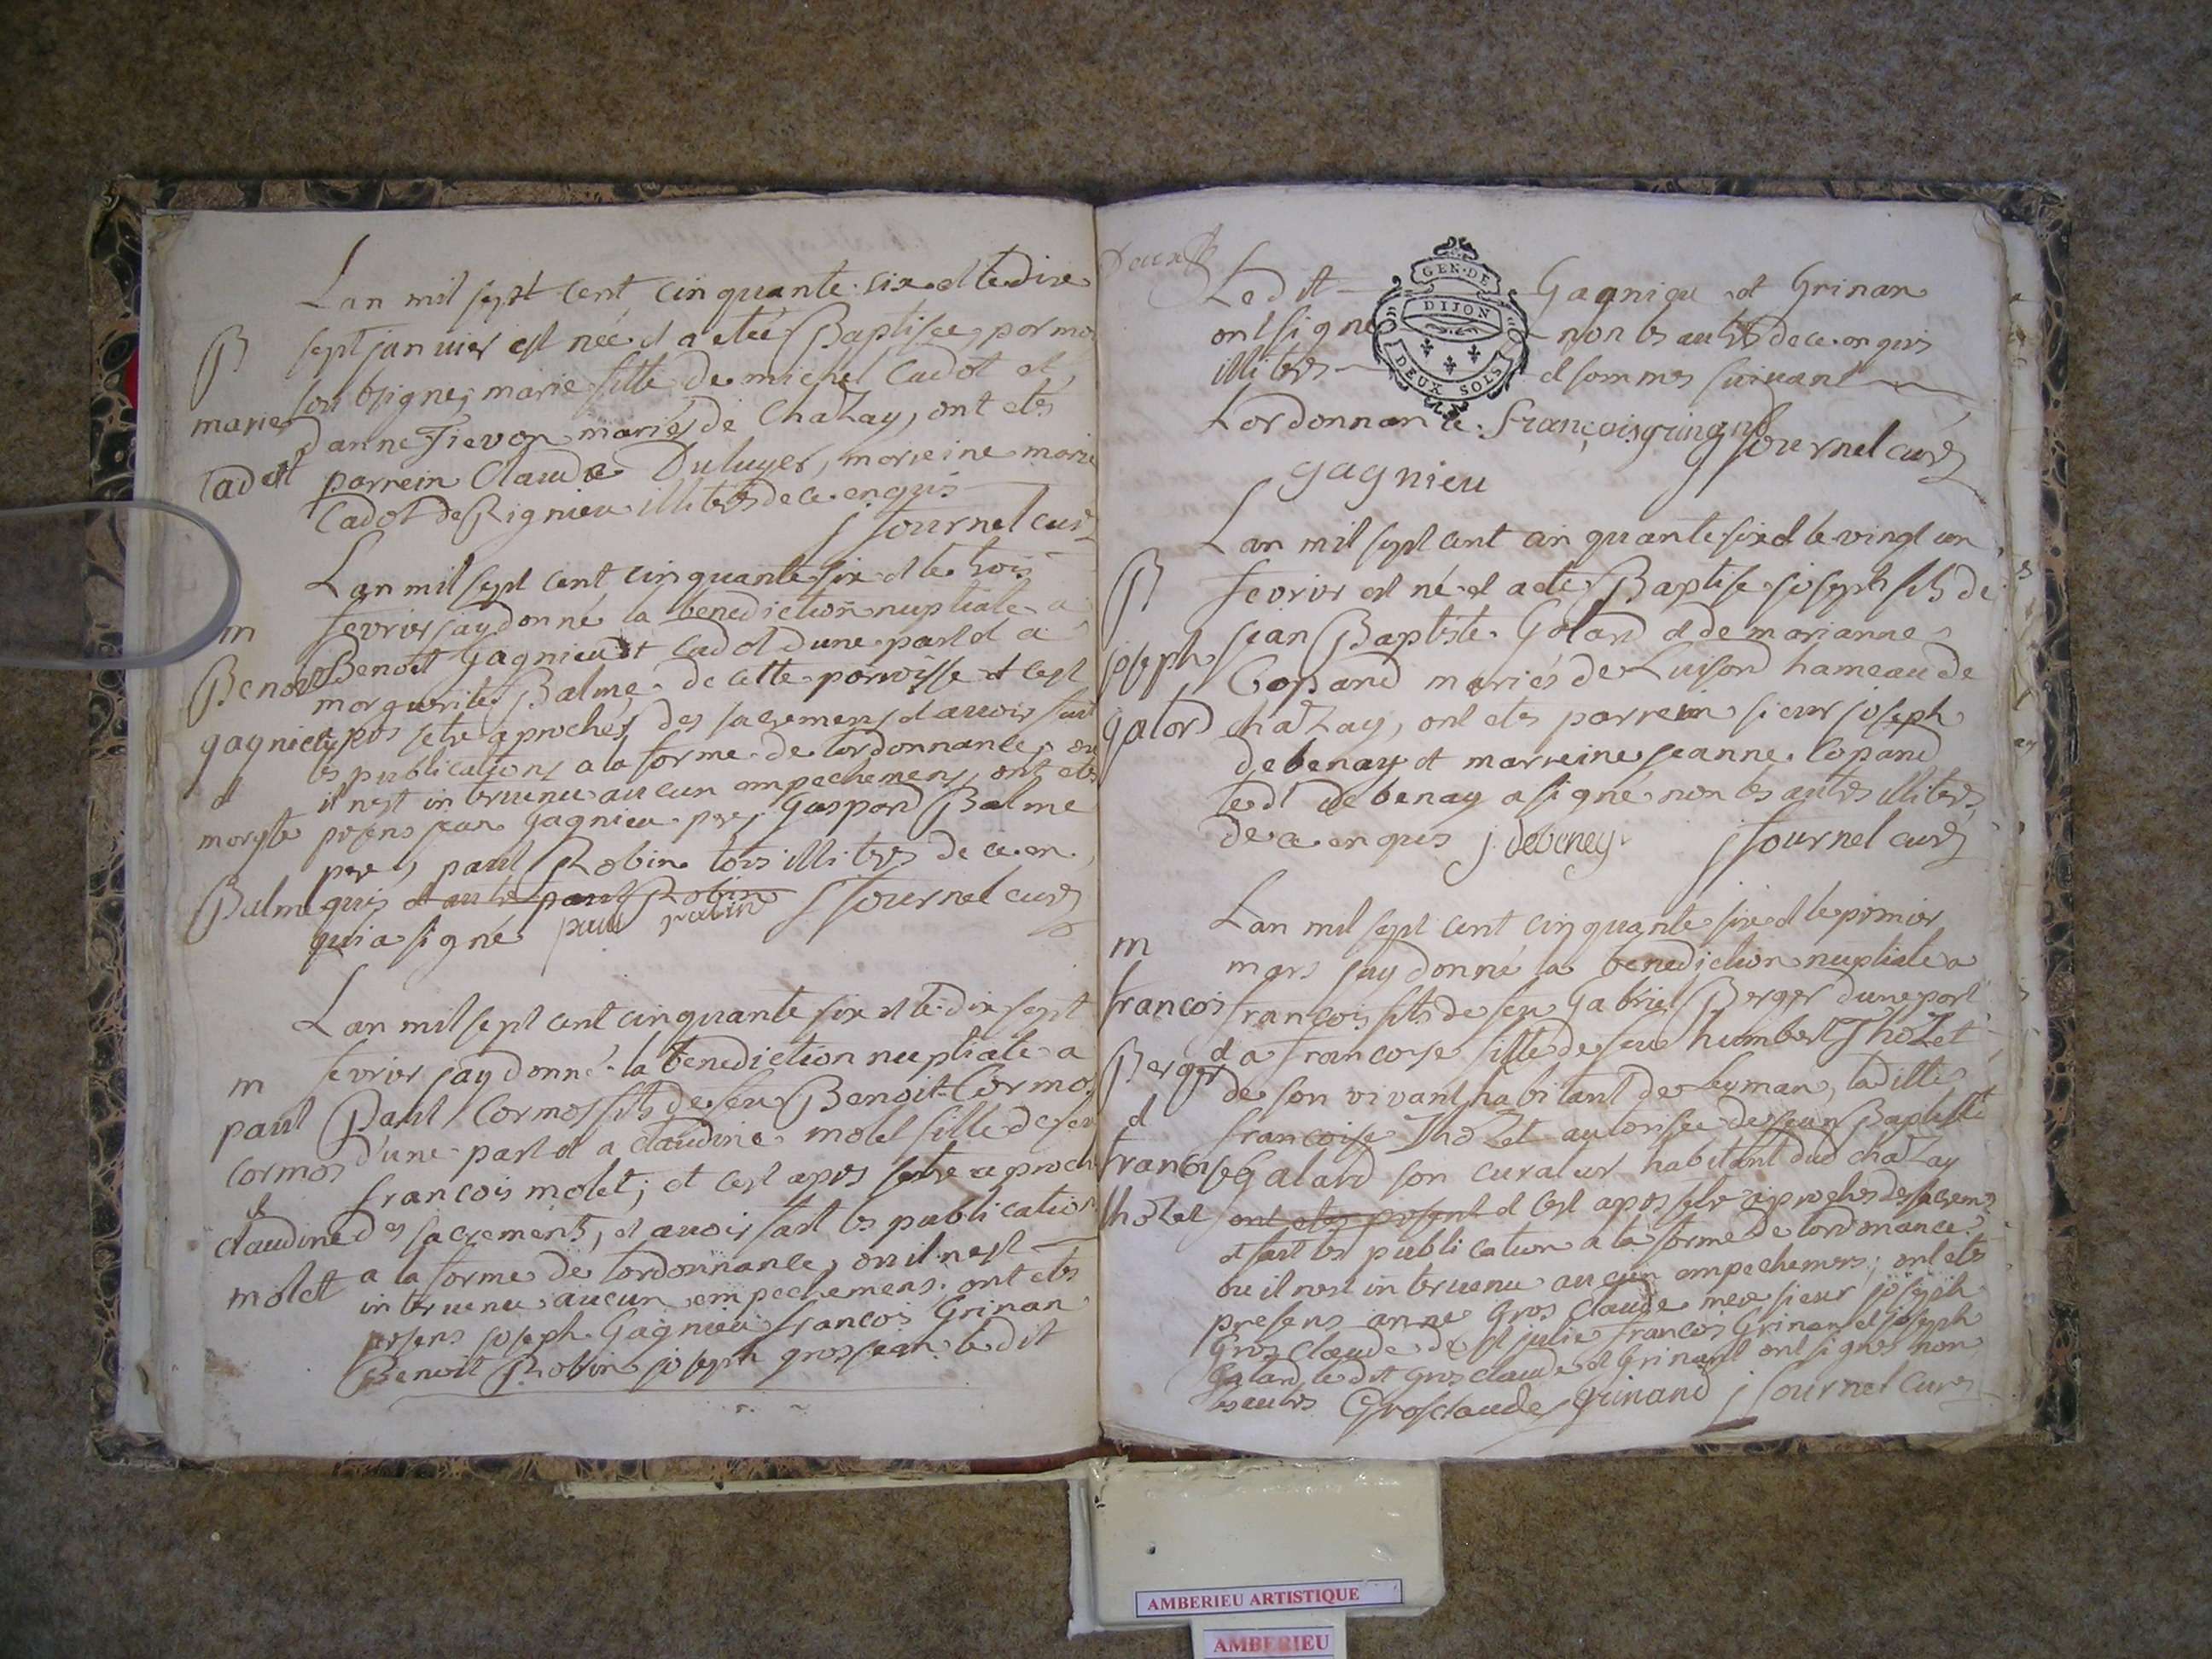 Lan mil sept cent cinquante six et le dix
B
sept janvier est née et a etée Baptisée, par moi
sousigné, marie fille de michel Cadot et
marie
danne Tievon mariés de Chazay, ont etés
Cadot
parrein Claude Duluyer, marreine marie
Cadot de Rignieu illiterés de ce enquis
j fournel curé
Lan mil sept cent cinquante six et le trois
m
fevrier jay donné la benediction nuptiale a
Benoit
Benoit Gagnieu et Cadot dune part et a
marguerite Balme de cette paroisse et cest
gagnieu
apres setre aproches des sacremens et avoir fait
les publications a la forme de lordonnance, ou
et
il nest intervenu aucun ampechemens, ont etés
margte
presens jean Gagnieu pere, Gaspard Balme
pere, paul Robin tous illiterés de ce en
Balme
quis et autre paul Robin j fournel curé
qui a signé paul robin
Lan mil sept cent cinquante six et le dix sept
m
fevrier jay donné la benediction nuptiale a
paul
Paul Cormos fils de feu Benoit Cormos
cormos
d'une part et a claudine molet fille de feu
et
francois molet; et cest apres setre aproché
claudine
des sacremens, et avoir fait les publication
molet
a la forme de lordonnance, ou il nest
intervenu aucun empechemens, ont etés
presens joseph Gagnieu francois Grinan
Benoit Robin joseph grosjean ledit
Deux
Ledit Gagnieu et Grinan
ont signé non les autres de ce enquis
illiterés et sommes suivant
Lordonnance. françois grinand
j fournel curé
gagnieu
GEN. DE
DIJON
DEUX SOLS
Lan mil sept cent cinquante six et le vingt un
B
fevrier est né et a eté Baptisé joseph fils de
joseph
jean Baptiste Galand et de marianne
Copand mariés de Luisond hameau de
galand
chazay, ont etés parrein sieur joseph
debenay et marreine jeanne Copand
ledt debenay a signé non les autres illiterés
de ce enquis j. debeney j fournel curé
Lan mil sept cent cinquante six et le premier
m
mars jay donné la benediction nuptiale a
francois
francois fils de feu Gabriel Berger dune part
Berger
et a francoise fille de feu humbert Thozet
de son vivant habitant de leyman, laditte
et
francoise Thozet autorisée de jean Baptiste
francoise
Galand son curateur habitant dud chazay
thozet
ont etés present et cest apres setre aproches des sacremens
et fait les publication a la forme de lordonnance
ou il nest intervenu aucun ampechemens; ont etés
presens anne Gros claude mere sieur joseph
Gros claude de st julie francois Grinan et joseph
Galand, ledit gros claude et Grinand ont signés non
les autres Grosclaude grinand j fournel curé
AMBERIEU ARTISTIQUE
AMBERIEU